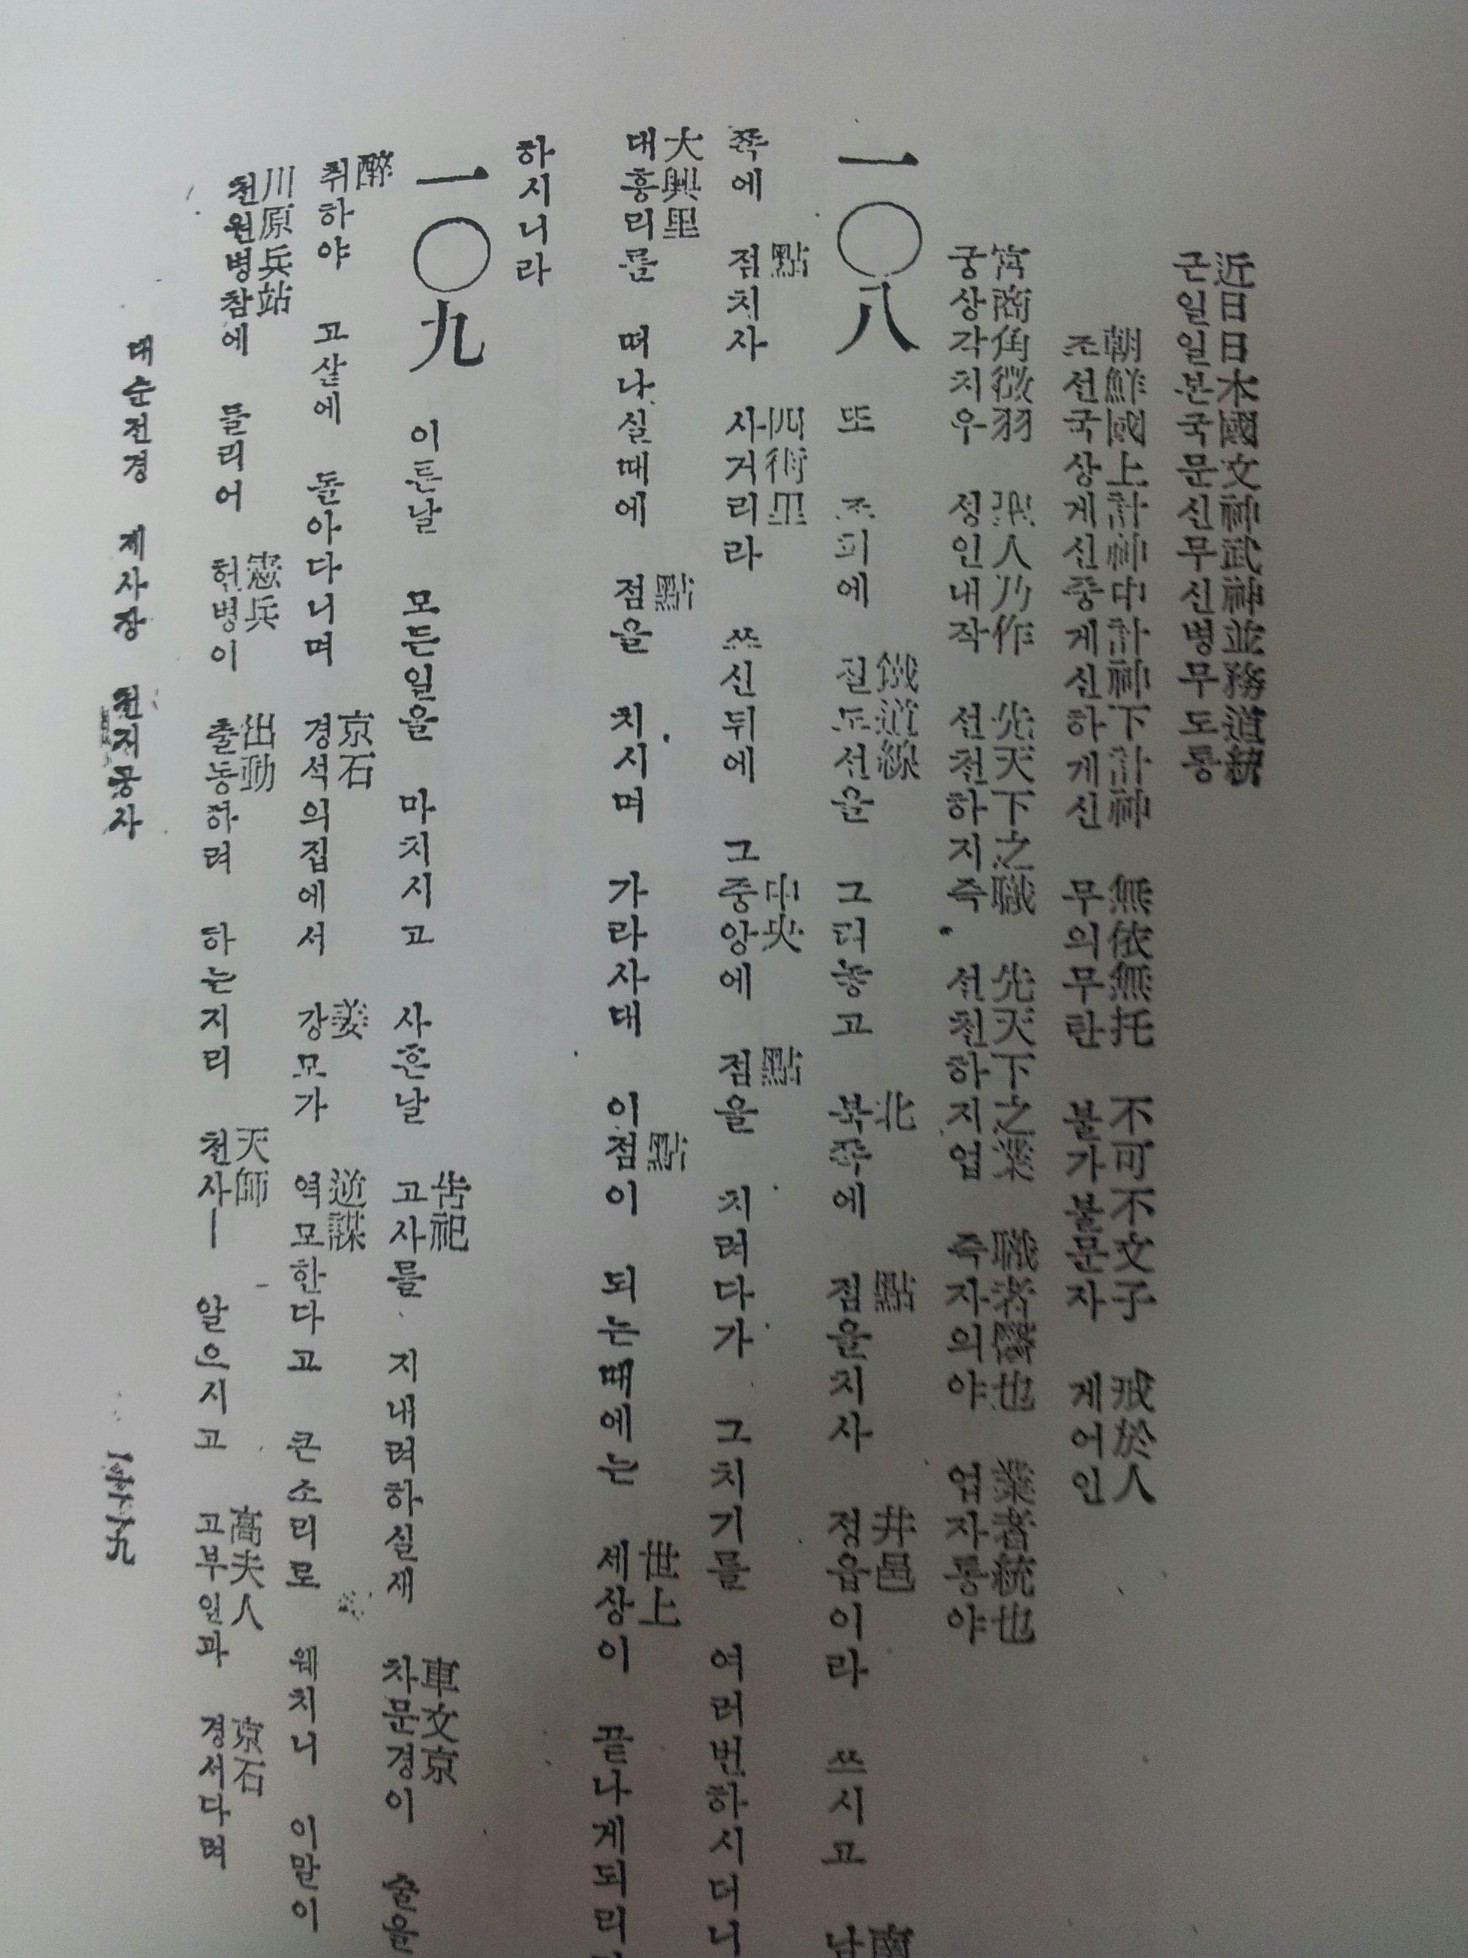 近日日本國文神武神並務道統
근일일본국문신무신병무도통
朝鮮國上計神中計神下計神 無依無托 不可不文子 戒於人
조선국상게신중게신하게신 무의무탁 불가불문자 게어인
宮商角徵羽 聖人乃作 先天下之職 先天下之業 職者醫也 業者統也
궁상각치우 성인내작 선천하지즉 선천하지업 즉자의야 업자통야
一〇八 또 조피에 철도선을 그려놓고 북쪽에 점을치사 정읍이라 쓰시고 남
鐵道線 北 點 井邑 南
쪽에 점치사 사거리라 쓰신뒤에 그중앙에 점을 치려다가 그치기를 여러번하시더니
點 四街里 中央 點
대흥리를 떠나실때에 점을 치시며 가라사대 이점이 되는때에는 세상이 끝나게되리
大興里 點 點 世上
하시니라
一〇九 이튼날 모든일을 마치시고 사흔날 고사를 지내려하실새 차문경이 술을
告祀 車文京
취하야 고샅에 돌아다니며 경석의집에서 강모가 역모한다고 큰소리로 웨치니 이말이
醉 京石 姜 逆謀
천원병참에 들리어 헌병이 출동하려 하는지리 천사ㅣ 알으시고 고부인과 경석다려
川原兵站 憲兵 出動 天師 高夫人 京石
대순전경 제사장 천지공사